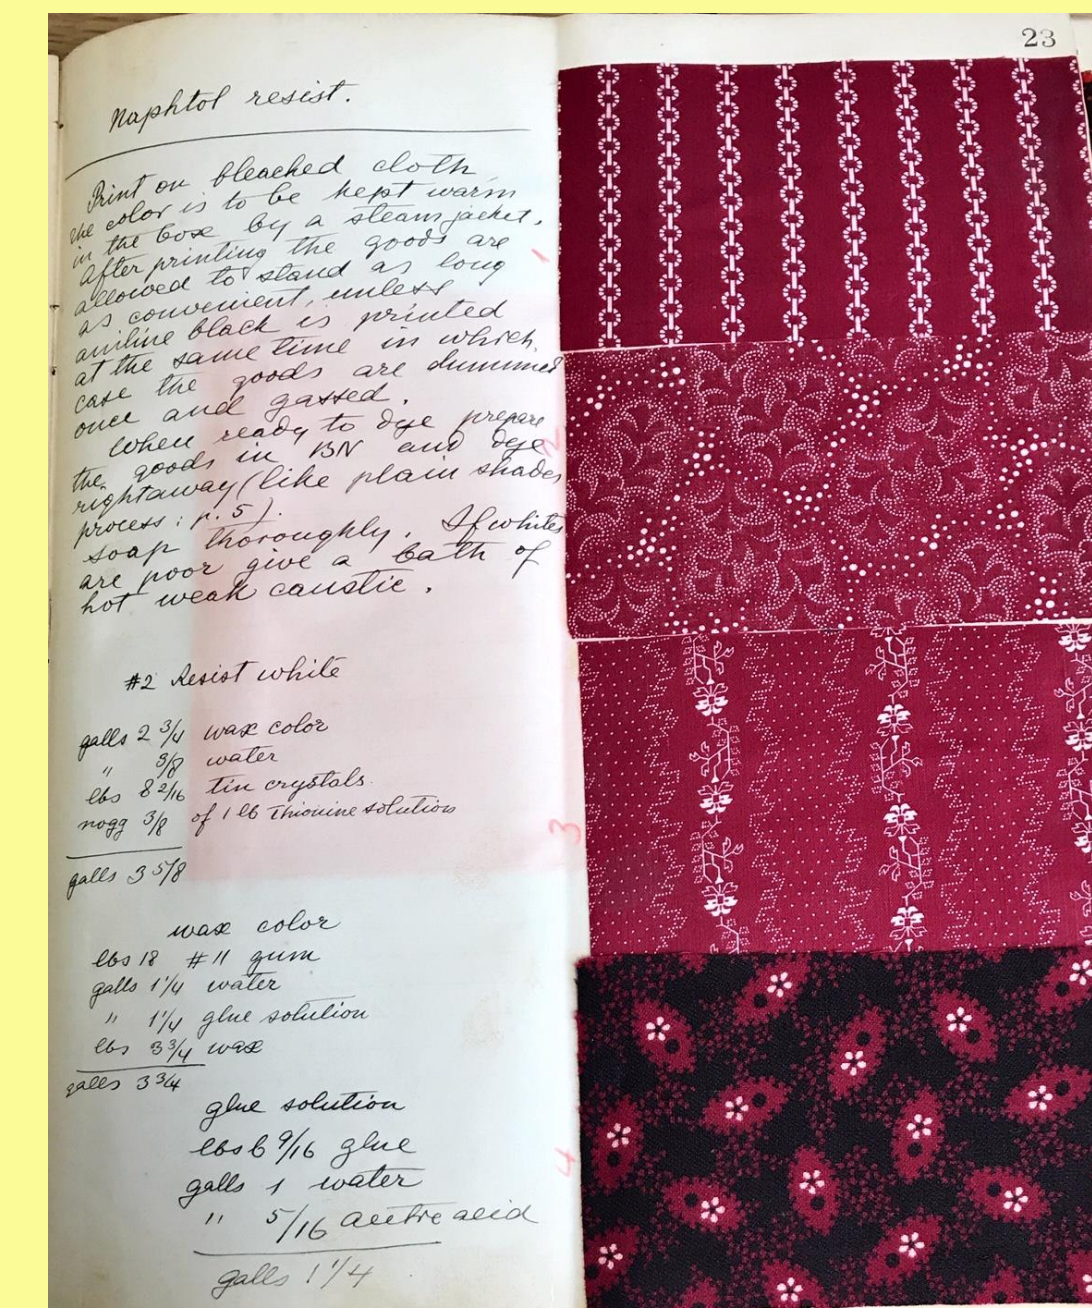 23
Naphtol resist.
Print on bleached cloth
the color is to be kept warm
in the box by a steam jacket.
After printing the goods are
allowed to stand as long
as convenient, unless
aniline black is printed
at the same time in which
case the goods are dummied
once and gassed.
When ready to dye prepare
the goods in BN and dye
rightaway (like plain shades
process: p. 5).
Soap thoroughly. If whites
are poor give a bath of
hot weak caustic.
#2 Resist white
galls 2 3/4 wax color
" 3/8 water
lbs 8 2/16 tin crystals
nogg 3/8 of 1 lb Thionine solution
galls 3 5/8
wax color
lbs 18 #11 gum
galls 1 1/4 water
" 1 1/4 glue solution
lbs 3 3/4 wax
galls 3 3/4
glue solution
lbs 6 9/16 glue
galls 1 water
" 5/16 acetic acid
galls 1 1/4
1
2
3
4